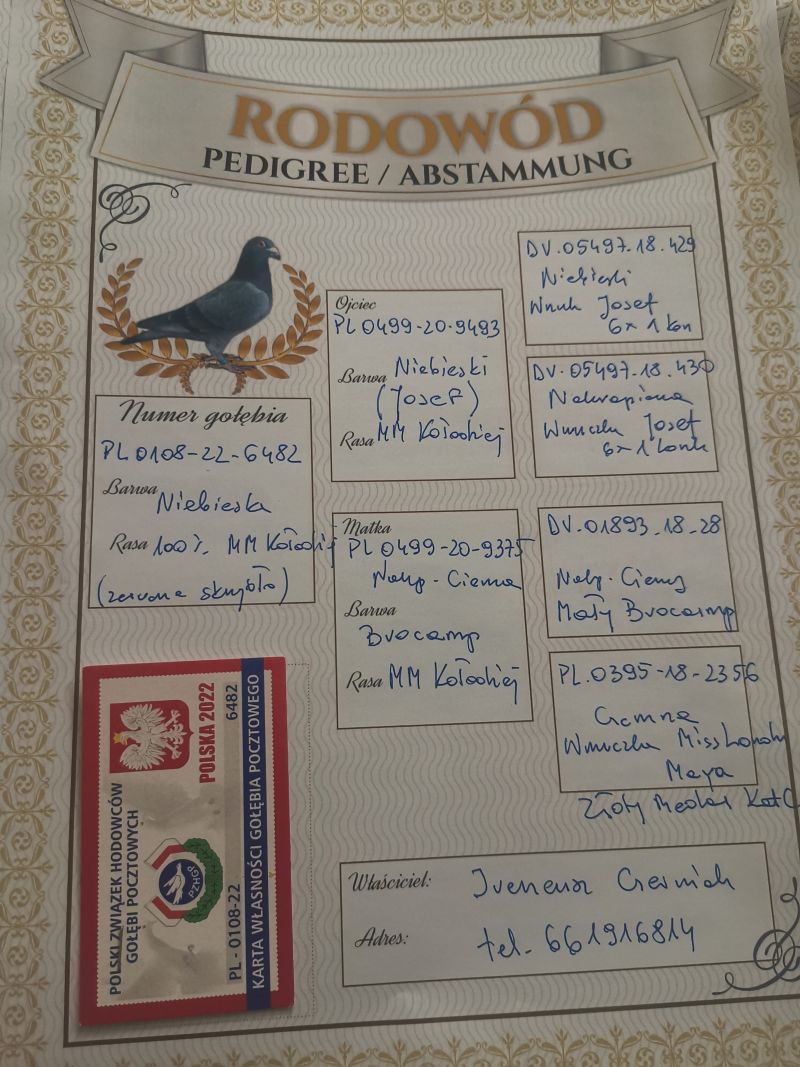 RODOWÓD
PEDIGREE / ABSTAMMUNG
Numer gołębia
PL 0108-22-6482
Barwa Niebieska
Rasa 100% MM Kołodziej
(zerwone skrzydło)
Ojciec
PL 0499-20-9493
Barwa Niebieski
(Josef)
Rasa MM Kołodziej
Matka
PL 0499-20-9375
Nakp. Ciemna
Barwa
Brocamp
Rasa MM Kołodziej
DV.05497.18.429
Niebieski
Wnuk Josef
6x 1 kon
DV.05497.18.430
Nakrapiana
Wnuczka Josef
6x1 konk
DV.01893.18-28
Nakp. Ciemny
Mały Brocamp
PL.0395-18-2356
Ciemna
Wnuczka Miss
Maya
Złoty Medal Kat C
Właściciel: Ireneusz Czerniak
Adres: tel. 661916814
POLSKI ZWIĄZEK HODOWCÓW
GOŁĘBI POCZTOWYCH
POLSKA 2022
PZHGP
PL - 0108-22 6482
KARTA WŁASNOŚCI GOŁĘBIA POCZTOWEGO